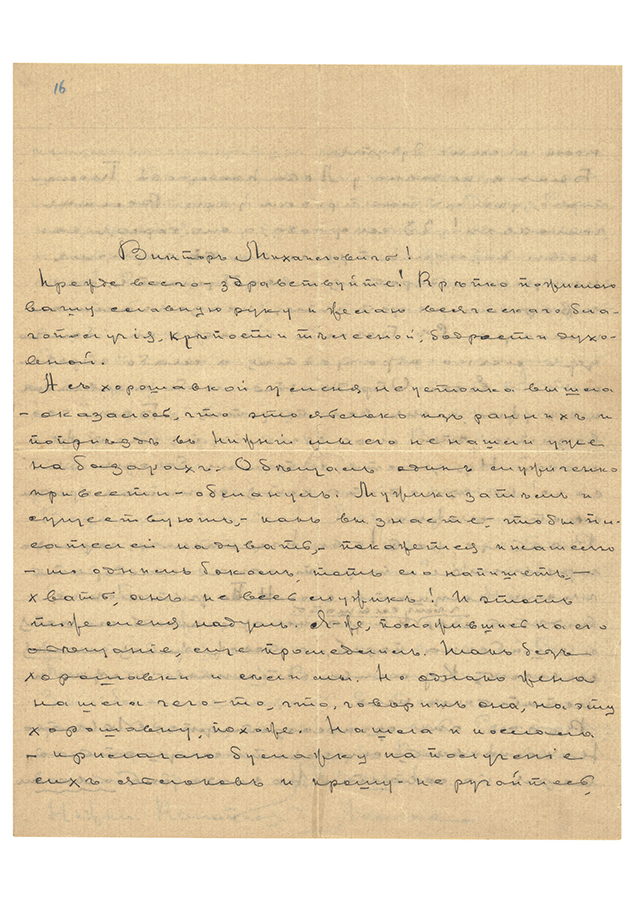 16
Викторъ Михайловичъ!
Прежде всего – здравствуйте! Крѣпко пожимаю
вашу славную руку и желаю всяческаго бла-
гополучія, крѣпости тѣлесной, бодрости духо-
вной.
А съ хорошавкой у меня неустойка вышла
– оказалось, что это яблоко изъ раннихъ и
по пріѣздѣ въ Нижній мы его не нашли уже
на базарахъ. Обѣщалъ одинъ мужиченко
привести – обманулъ. Мужики затѣмъ и
существуютъ, – какъ вы знаете, – чтобы пи-
сателей надувать, – покажется писателю
– то однимъ бокомъ, тотъ его напишетъ, –
хвать, анъ не весь мужикъ! И этотъ
тоже меня надулъ. Я-же, положившись на его
обѣщаніе, еще промедлилъ. Такъ безъ
хорошавки и съели мы. Но однако жена
нашла чего-то, что, говоритъ она, на эту
хорошавку похоже. Нашла и послала
– прилагаю бумажку на полученіе
сихъ яблоковъ и прошу – не ругайтесь,